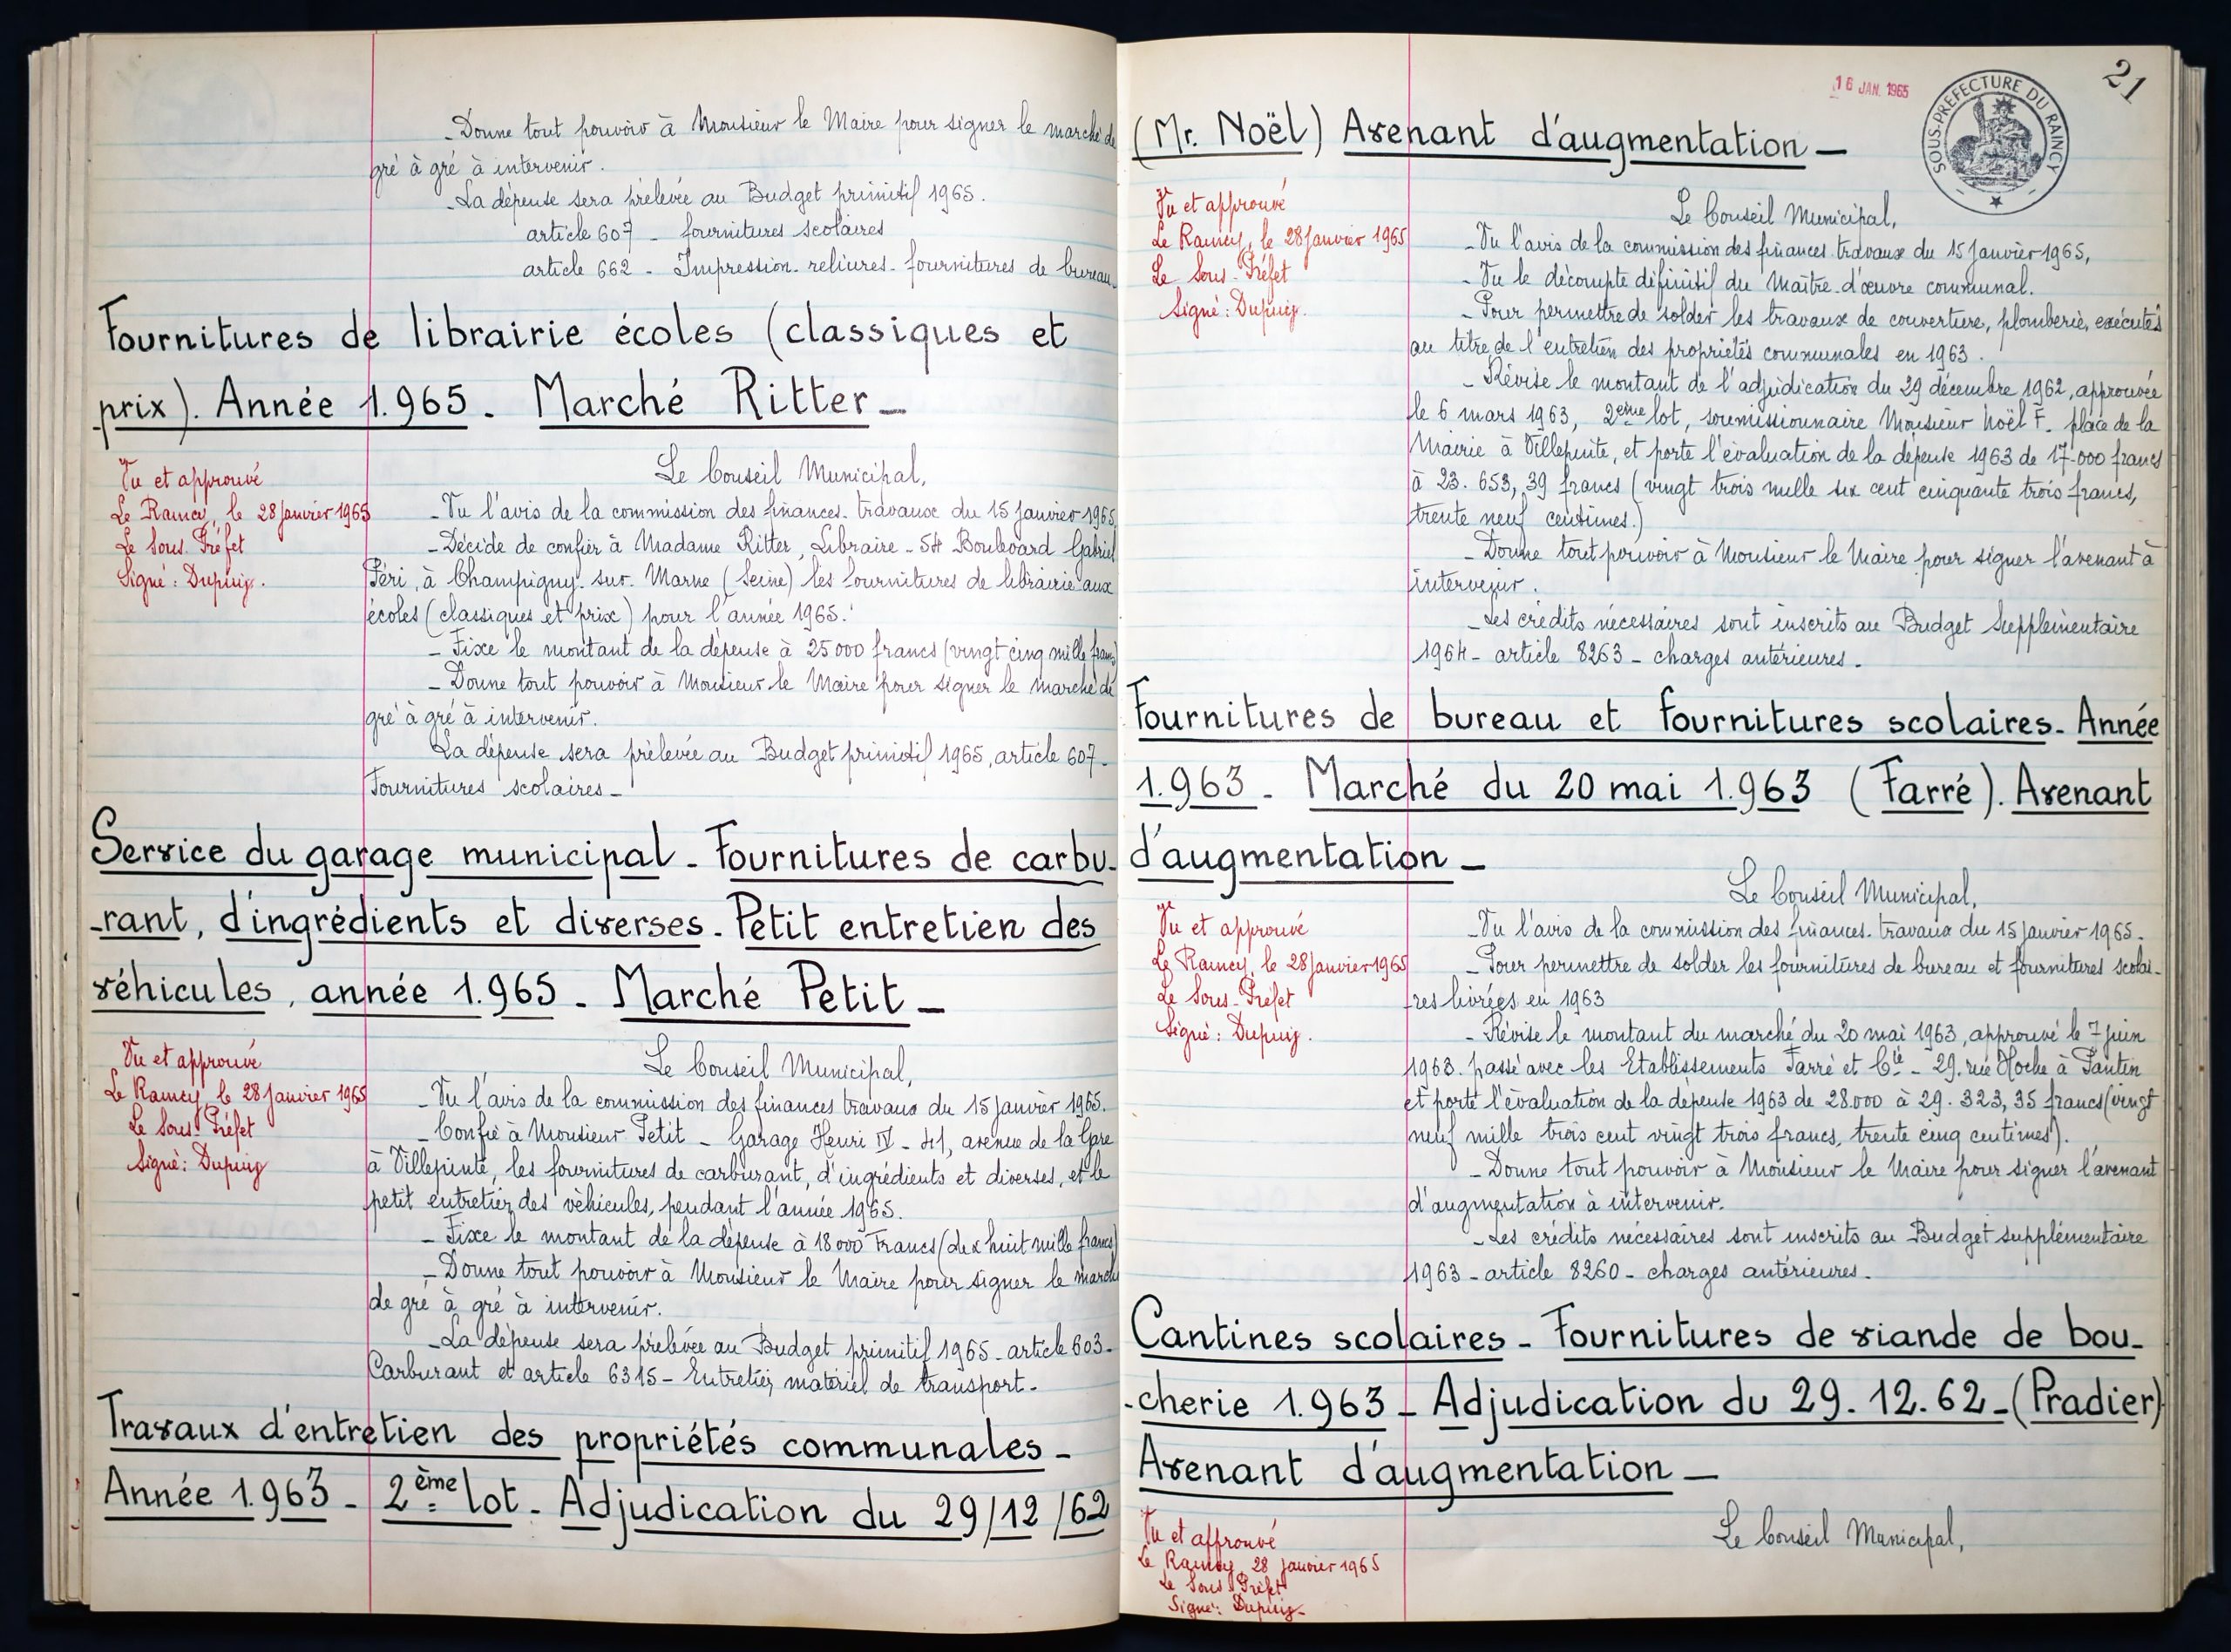 - Donne tout pouvoir à Monsieur le Maire pour signer le marché de
gré à gré à intervenir.
- La dépense sera prélevée au Budget primitif 1965.
article 607 - fournitures scolaires
article 662 - Impression. reliures. fournitures de bureau.
Fournitures de librairie écoles (classiques et
prix). Année 1.965 - Marché Ritter -
Vu et approuvé
Le Raincy, le 28 Janvier 1965
Le Sous. Préfet
Signé : Dupuiy.
Le Conseil Municipal,
- Vu l'avis de la commission des finances. travaux du 15 Janvier 1965,
- Décide de confier à Madame Ritter, Libraire - 54 Boulevard Gabriel
Péri, à Champigny. sur. Marne (Seine) les fournitures de librairie aux
écoles (classiques et prix) pour l'année 1965.
- Fixe le montant de la dépense à 25 000 francs (vingt cinq mille francs)
- Donne tout pouvoir à Monsieur le Maire pour signer le marché de
gré à gré à intervenir.
La dépense sera prélevée au Budget primitif 1965, article 607 -
Fournitures scolaires -
Service du garage municipal - Fournitures de carbu-
-rant, d'ingrédients et diverses - Petit entretien des
véhicules, année 1.965 - Marché Petit -
Vu et approuvé
Le Raincy, le 28 Janvier 1965
Le Sous. Préfet
Signé : Dupuiy
Le Conseil Municipal,
- Vu l'avis de la commission des finances travaux du 15 Janvier 1965.
- Confie à Monsieur Petit - Garage Henri IV - 41, avenue de la Gare
à Villepinte, les fournitures de carburant, d'ingrédients et diverses, et le
petit entretien des véhicules, pendant l'année 1965.
- Fixe le montant de la dépense à 18 000 Francs (dix huit mille francs)
- Donne tout pouvoir à Monsieur le Maire pour signer le marché
de gré à gré à intervenir.
- La dépense sera prélevée au Budget primitif 1965 - article 603 -
Carburant et article 6315 - Entretien matériel de transport -
Travaux d'entretien des propriétés communales -
Année 1.963 - 2ème lot - Adjudication du 29/12/62
16 JAN. 1965
SOUS-PREFECTURE DU RAINCY
21
(Mr. Noël) Avenant d'augmentation -
Vu et approuvé
Le Raincy, le 28 Janvier 1965
Le Sous - Préfet
Signé : Dupuiy.
Le Conseil Municipal,
- Vu l'avis de la commission des finances. travaux du 15 Janvier 1965,
- Vu le décompte définitif du Maître. d'œuvre communal.
- Pour permettre de solder les travaux de couverture, plomberie, exécutés
au titre de l'entretien des propriétés communales en 1963.
- Révise le montant de l'adjudication du 29 décembre 1962, approuvée
le 6 mars 1963, 2ème lot, soumissionnaire Monsieur Noël F. place de la
Mairie à Villepinte, et porte l'évaluation de la dépense 1963 de 17.000 francs
à 23. 653, 39 francs (vingt trois mille six cent cinquante trois francs,
trente neuf centimes.)
- Donne tout pouvoir à Monsieur le Maire pour signer l'avenant à
intervenir.
- Les crédits nécessaires sont inscrits au Budget Supplémentaire
1964 - article 8263 - charges antérieures.
Fournitures de bureau et fournitures scolaires - Année
1.963 - Marché du 20 mai 1.963 (Farré). Avenant
d'augmentation -
Vu et approuvé
Le Raincy, le 28 Janvier 1965
Le Sous - Préfet
Signé : Dupuiy.
Le Conseil Municipal,
- Vu l'avis de la commission des finances. travaux du 15 Janvier 1965.
- Pour permettre de solder les fournitures de bureau et fournitures scolai-
-res livrées en 1963
- Révise le montant du marché du 20 mai 1963, approuvé le 7 juin
1963. passé avec les Etablissements Farré et Cie - 29. rue Hoche à Pantin
et porte l'évaluation de la dépense 1963 de 28.000 à 29. 323, 35 francs (vingt
neuf mille trois cent vingt trois francs, trente cinq centimes).
- Donne tout pouvoir à Monsieur le Maire pour signer l'avenant
d'augmentation à intervenir.
- Les crédits nécessaires sont inscrits au Budget supplémentaire
1963 - article 8260 - charges antérieures.
Cantines scolaires - Fournitures de viande de bou-
-cherie 1.963 - Adjudication du 29. 12. 62 - (Pradier)
Avenant d'augmentation -
Vu et approuvé
Le Raincy, 28 Janvier 1965
Le Sous Préfet
Signé : Dupuiy
Le Conseil Municipal,